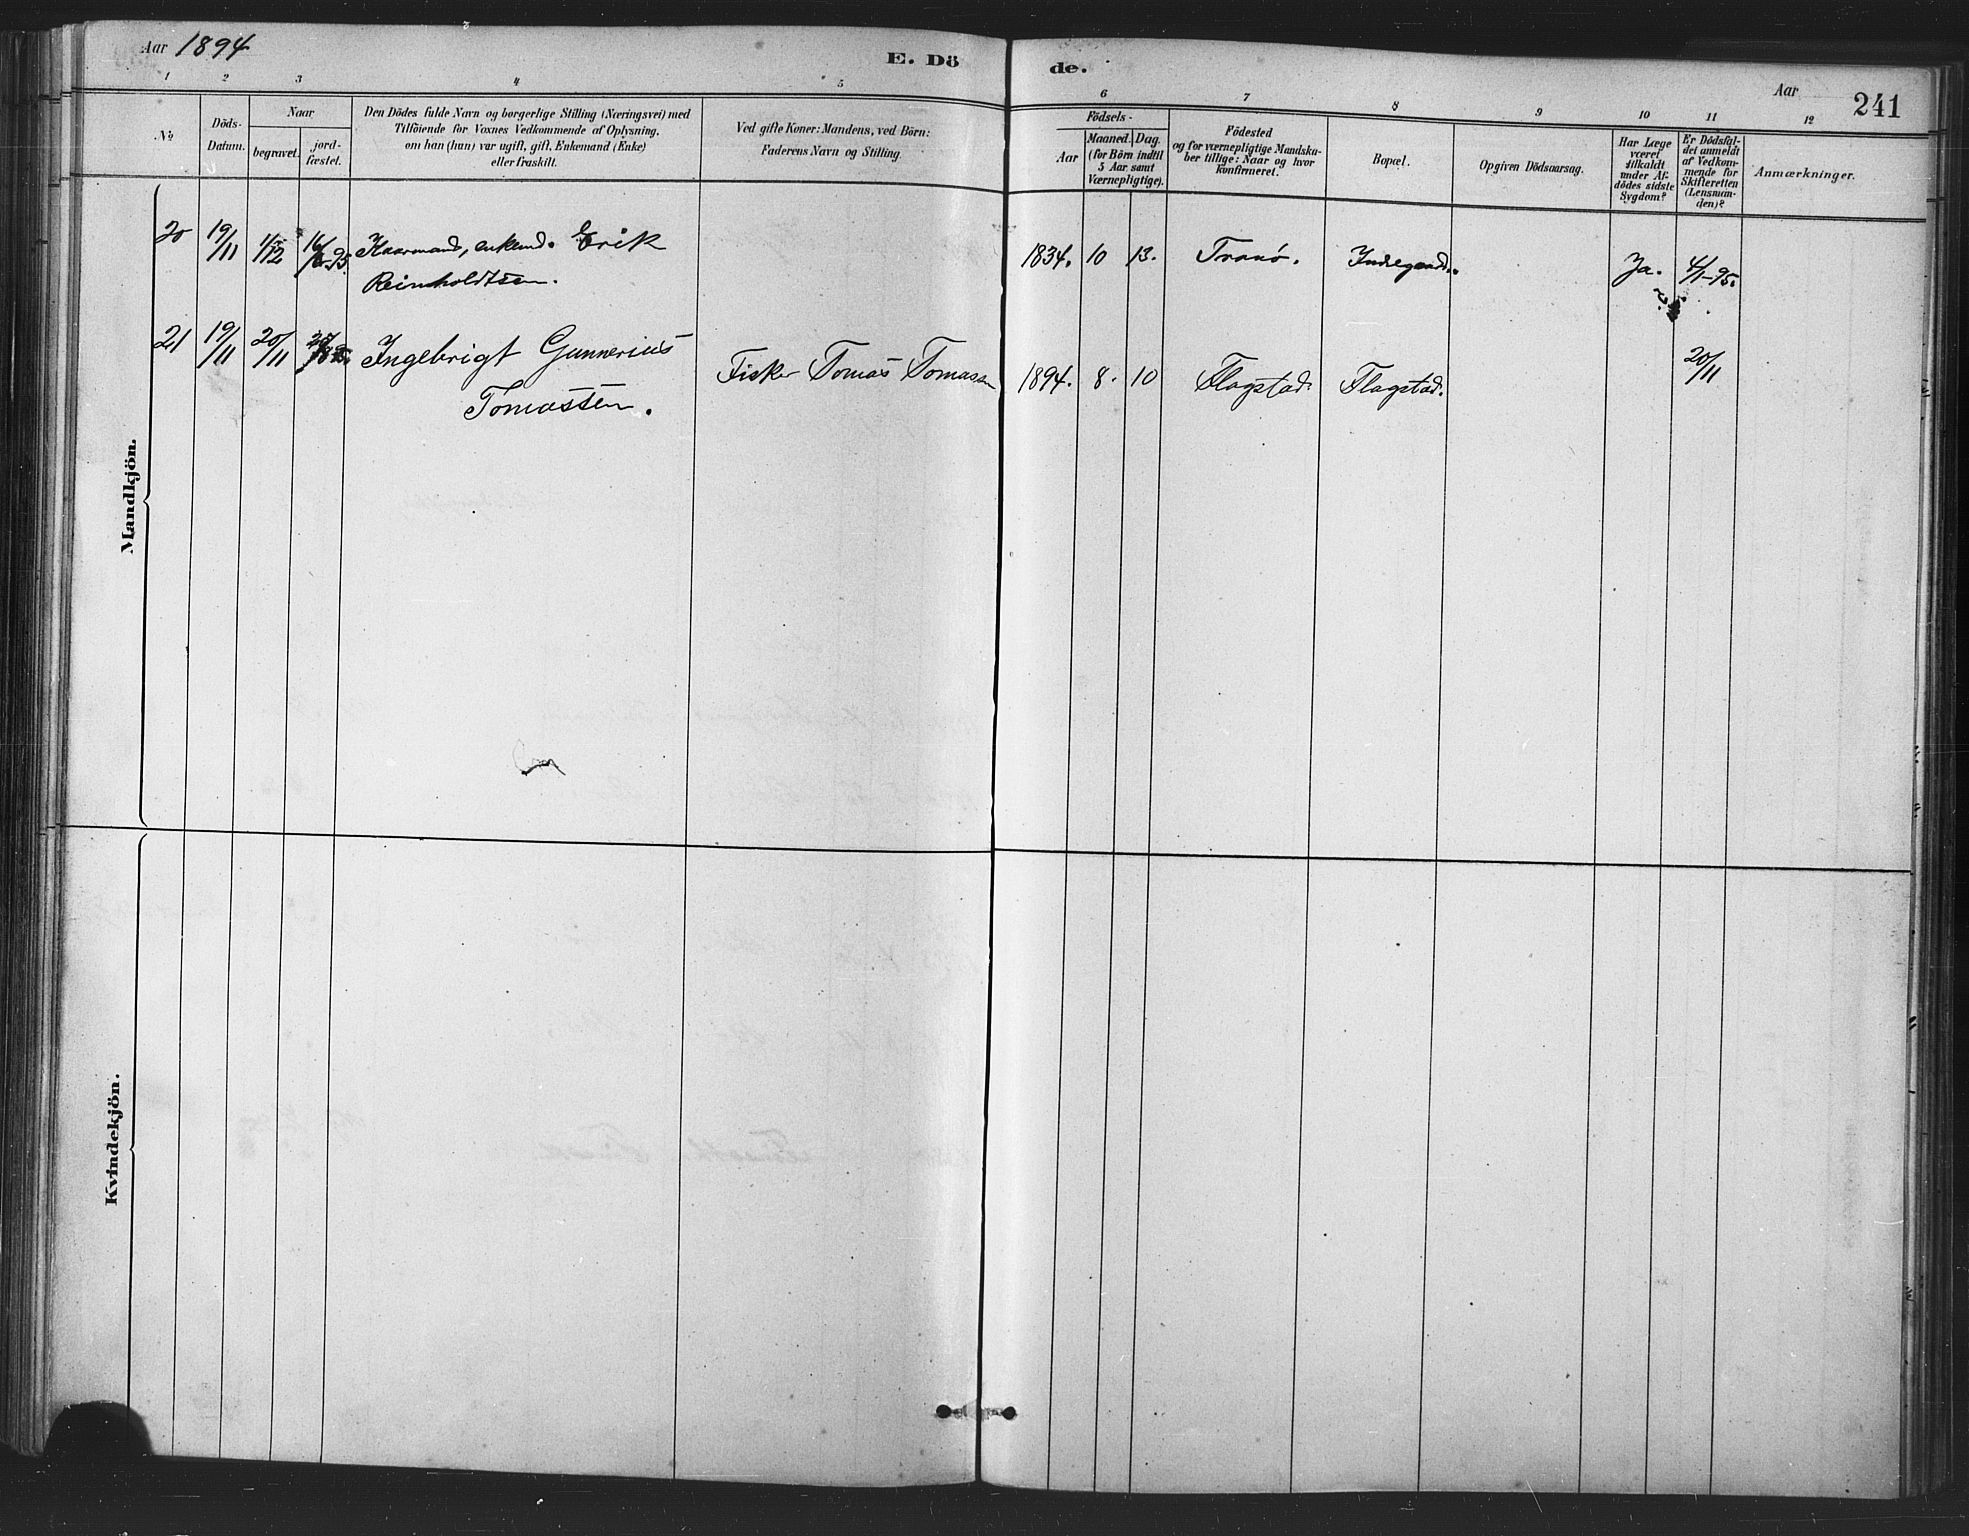 Aar 1894
E. Dö
de.
Aar
241
1 2 3 4 5 6 7 8 9 10 11 12
No
Döds-
Datum.
Naar
begravet.
jord-
fæstet.
Den Dödes fulde Navn og borgerlige Stilling (Næringsvei) med
Tilföiende for Voxnes Vedkommende af Oplysning,
om han (hun) var ugift, gift, Enkemand (Enke)
eller fraskilt.
Ved gifte Koner: Mandens, ved Börn:
Faderens Navn og Stilling.
Födsels-
Aar
Maaned. Dag.
(for Börn indtil
5 Aar samt
Værnepligtige).
Födested
og for værnepligtige Mandska-
ber tillige: Naar og hvor
konfirmeret.
Bopæl.
Opgiven Dödsaarsag.
Har Læge
været
tilkaldt
under Af-
dödes sidste
Sygdom?
Er Dödsfal-
det anmeldt
af Vedkom-
mende for
Skifteretten
(Lensman-
den)?
Anmærkninger.
Mandkjön.
20 19/11 1/12 Kaarmand, enkemd. Erik
Reinholdtsen.
1834. 10 13. Tranö. Indregaard. Ja. 4/1-95.
21 19/11 20/11 Ingebrigt Gunnerius
Tomassen.
Fisker Tomas Tomassen
1894. 8. 10 Flagstad. Flagstad. 20/11
Kvindekjön.